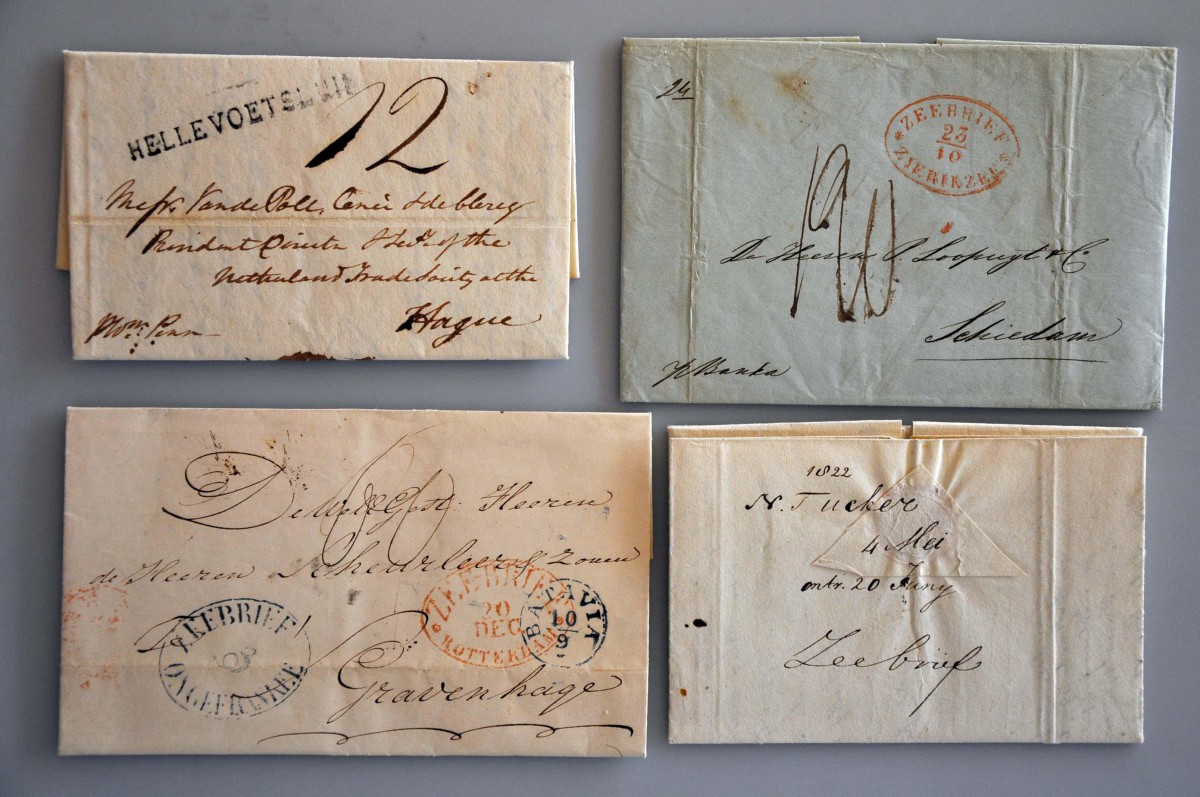 HELLEVOETSLUIS
12
Messrs Van de Poll,
President Director & Secy of the
Netherland Trade Society at the
Hague
24
ZEEBRIEF
23
10
ZIERIKZEE
De Heeren P. Loopuyt & C.
Schiedam
p Banka
De WelEd Gest. Heeren
de Heeren Scheurleer & Zonen
ZEEBRIEF
ONGEFRANKEERD
60
ZEEBRIEF
20
DEC
ROTTERDAM
BATAVIA
10
9
Gravenhage
1822
N. Tucker
4 Mei
ontv. 20 Juny
Zeebrief